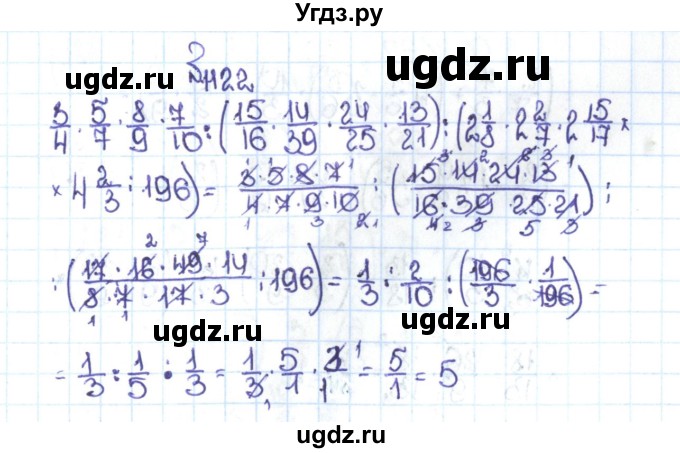 Угдз.ру
ugdz.ru ugdz.ru
№1122
3/4 · 5/7 · 8/9 · 7/10 : (15/16 · 14/39 · 24/25 · 13/21) : (2 1/8 · 2 2/7 · 2 15/17 ×
× 4 2/3 : 196) = 3·5·8·7/4·7·9·10 : (15·14·24·13/16·39·25·21) :
ugdz.ru
: (17·16·49·14/8·7·17·3 : 196) = 1/3 : 2/10 : (196/3 · 1/196) =
ugdz.ru ugdz.ru
= 1/3 : 1/5 : 1/3 = 1/3 · 5/1 · 3/1 = 5/1 = 5
ugdz.ru
ugdz.ru